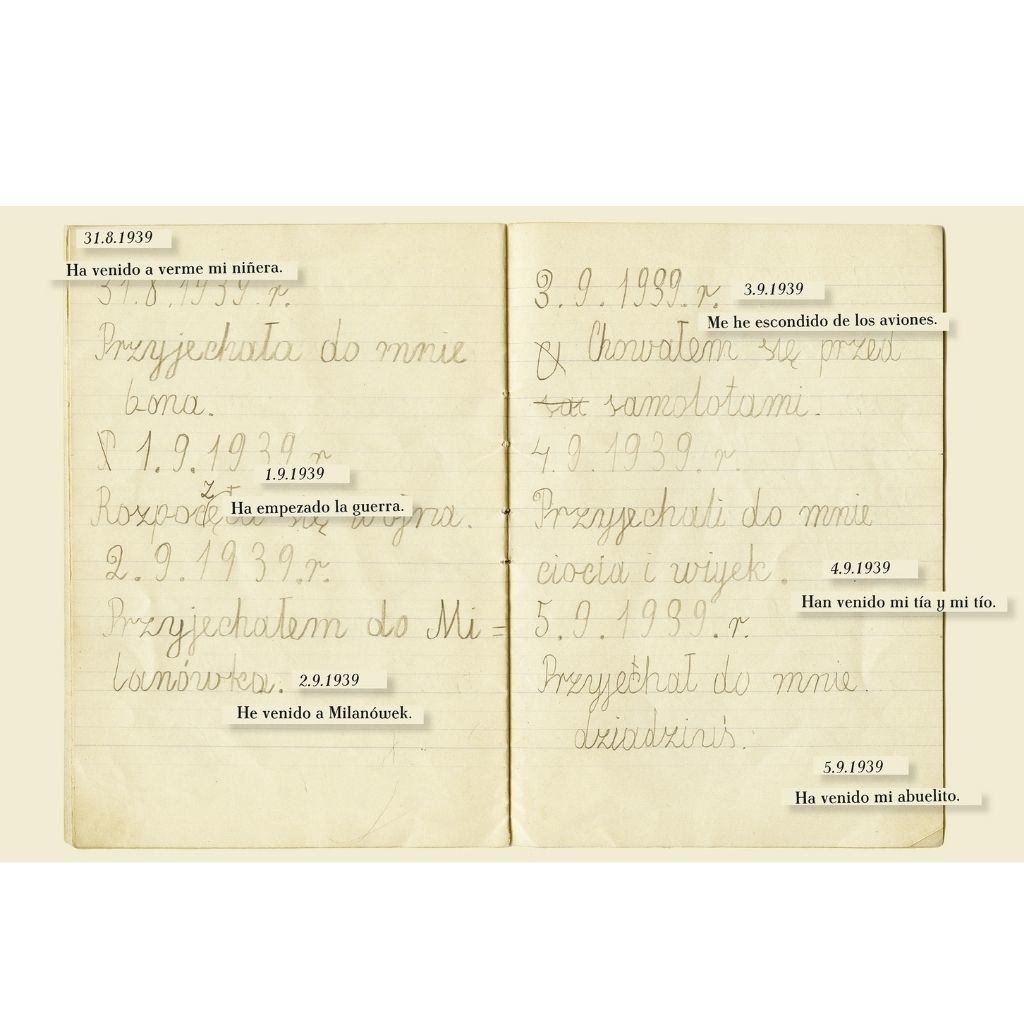 31.8.1939
Ha venido a verme mi niñera.
31.8.1939.r.
Przyjechała do mnie
bona.
1.9.1939.r
1.9.1939
Rozpoczęła się wojna.
Ha empezado la guerra.
2.9.1939.r.
Przyjechałem do Mi=
lanówka.
2.9.1939
He venido a Milanówek.
3.9.1939.r.
3.9.1939
Me he escondido de los aviones.
Chowałem się przed
sac samolotami.
4.9.1939.r.
Przyjechali do mnie
ciocia i wujek.
4.9.1939
Han venido mi tía y mi tío.
5.9.1939.r.
Przyjechał do mnie
dziadziuś.
5.9.1939
Ha venido mi abuelito.